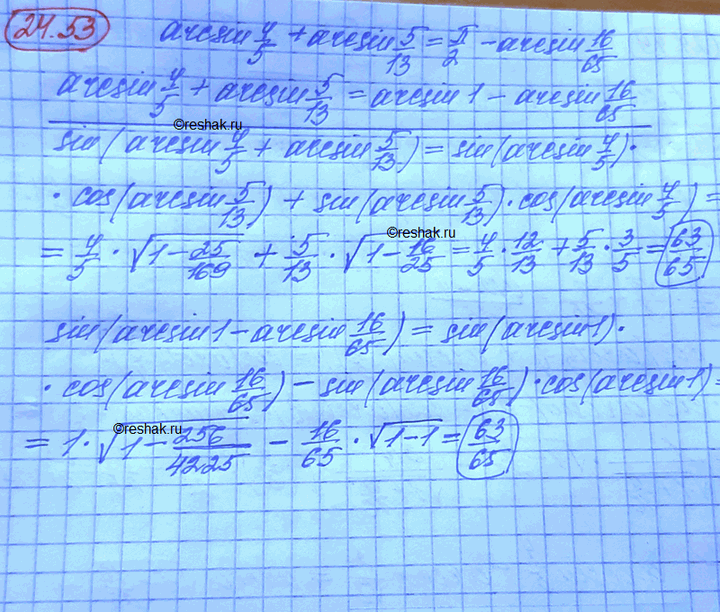 24.53 arcsin 4/5 + arcsin 5/13 = π/2 - arcsin 16/65
arcsin 4/5 + arcsin 5/13 = arcsin 1 - arcsin 16/65
©reshak.ru
sin(arcsin 4/5 + arcsin 5/13) = sin(arcsin 4/5) ·
· cos(arcsin 5/13) + sin(arcsin 5/13) · cos(arcsin 4/5) =
©reshak.ru
= 4/5 · √(1 - 25/169) + 5/13 · √(1 - 16/25) = 4/5 · 12/13 + 5/13 · 3/5 = 63/65
sin(arcsin 1 - arcsin 16/65) = sin(arcsin 1) ·
· cos(arcsin 16/65) - sin(arcsin 16/65) · cos(arcsin 1) =
©reshak.ru
= 1 · √(1 - 256/4225) - 16/65 · √(1-1) = 63/65